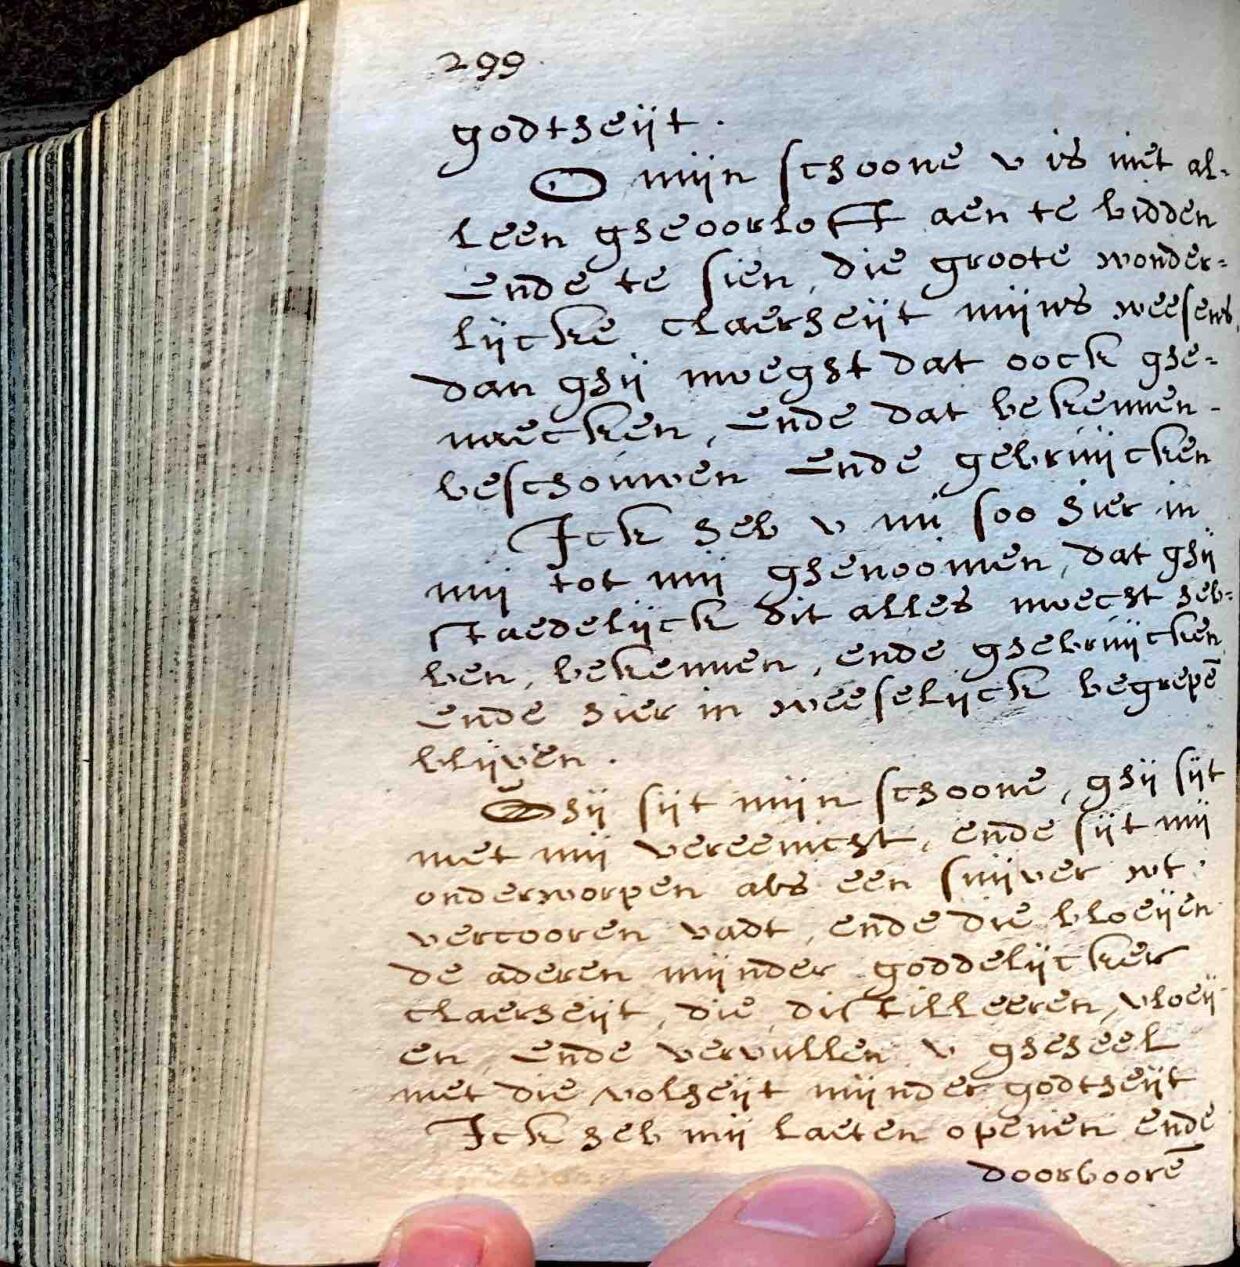 299.
godtheijt.
O mijn schoone v is niet al-
leen gheoorloft aen te bidden
ende te sien, die groote wonder=
lijcke claerheijt mijns weesens,
dan ghij moeght dat oock ghe=
naecken, ende dat bekennen-
beschouwen ende gebruijcken
Ick heb v nu soo hier in
mij tot mij ghenoomen, dat ghij
staedelijck dit alles moecht heb=
ben, bekennen, ende ghebruijcken
ende hier in weeselijck begrepē
blijven.
Ghij sijt mijn schoone, ghij sijt
met mij vereenicht, ende sijt mij
onderworpen als een suijver wt.
vercooren vadt, ende die bloeijen
de aderen mijnder goddelijcker
claerheijt, die distilleeren, vloeij
en, ende vervullen v gheheel
met die volheijt mijnder godtheijt
Ick heb mij laeten openen ende
doorboorē